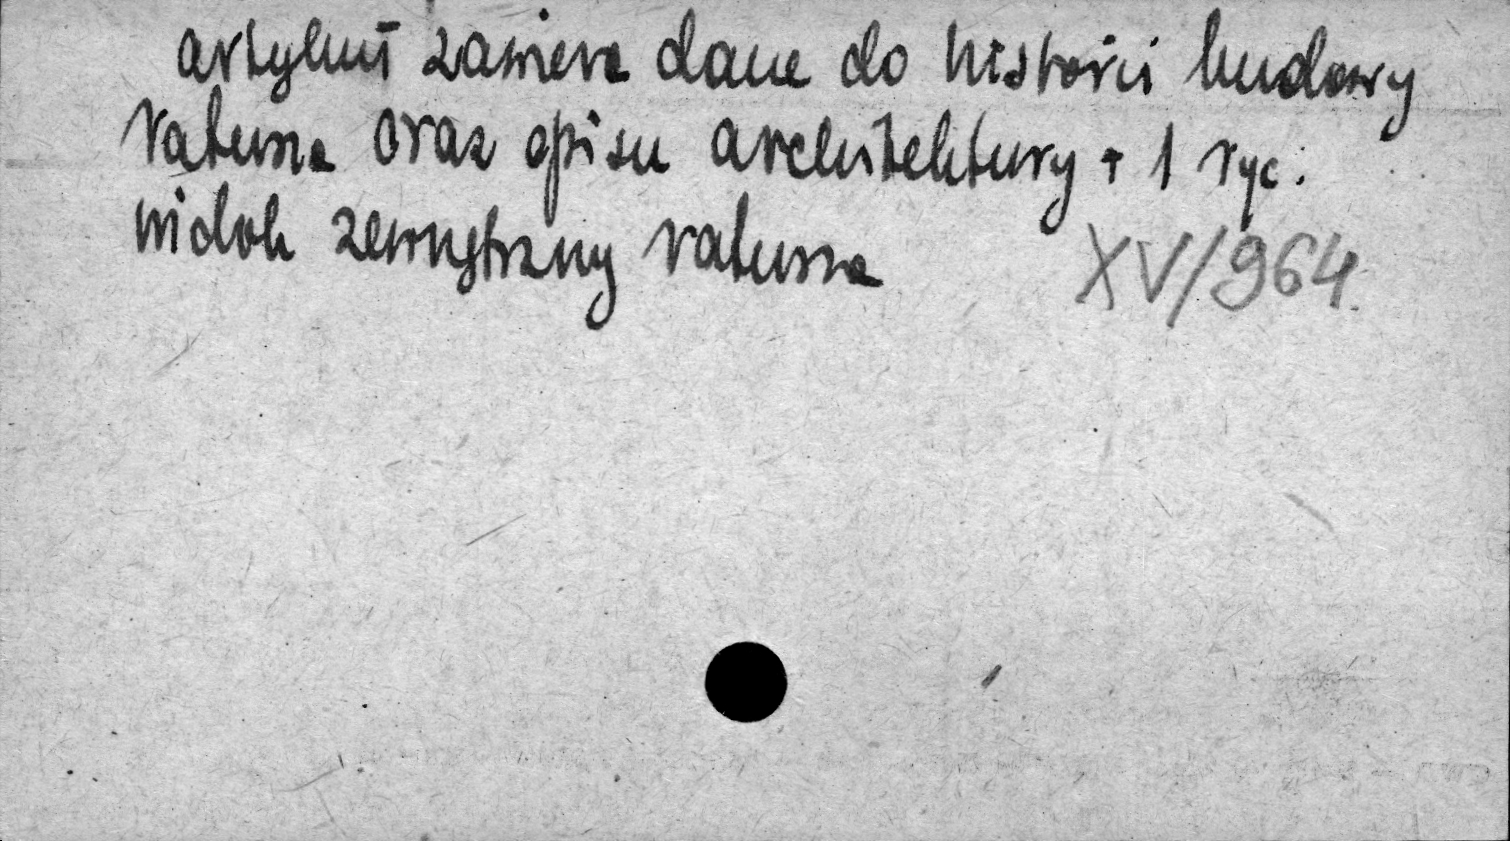 artykuł zawiera dane do historii budowy
ratusza oraz opisu architektury + 1 ryc.
widok zewnętrzny ratusza
XV/964